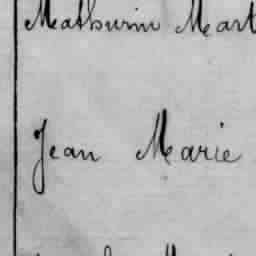 Mathurin Mart
Jean Marie